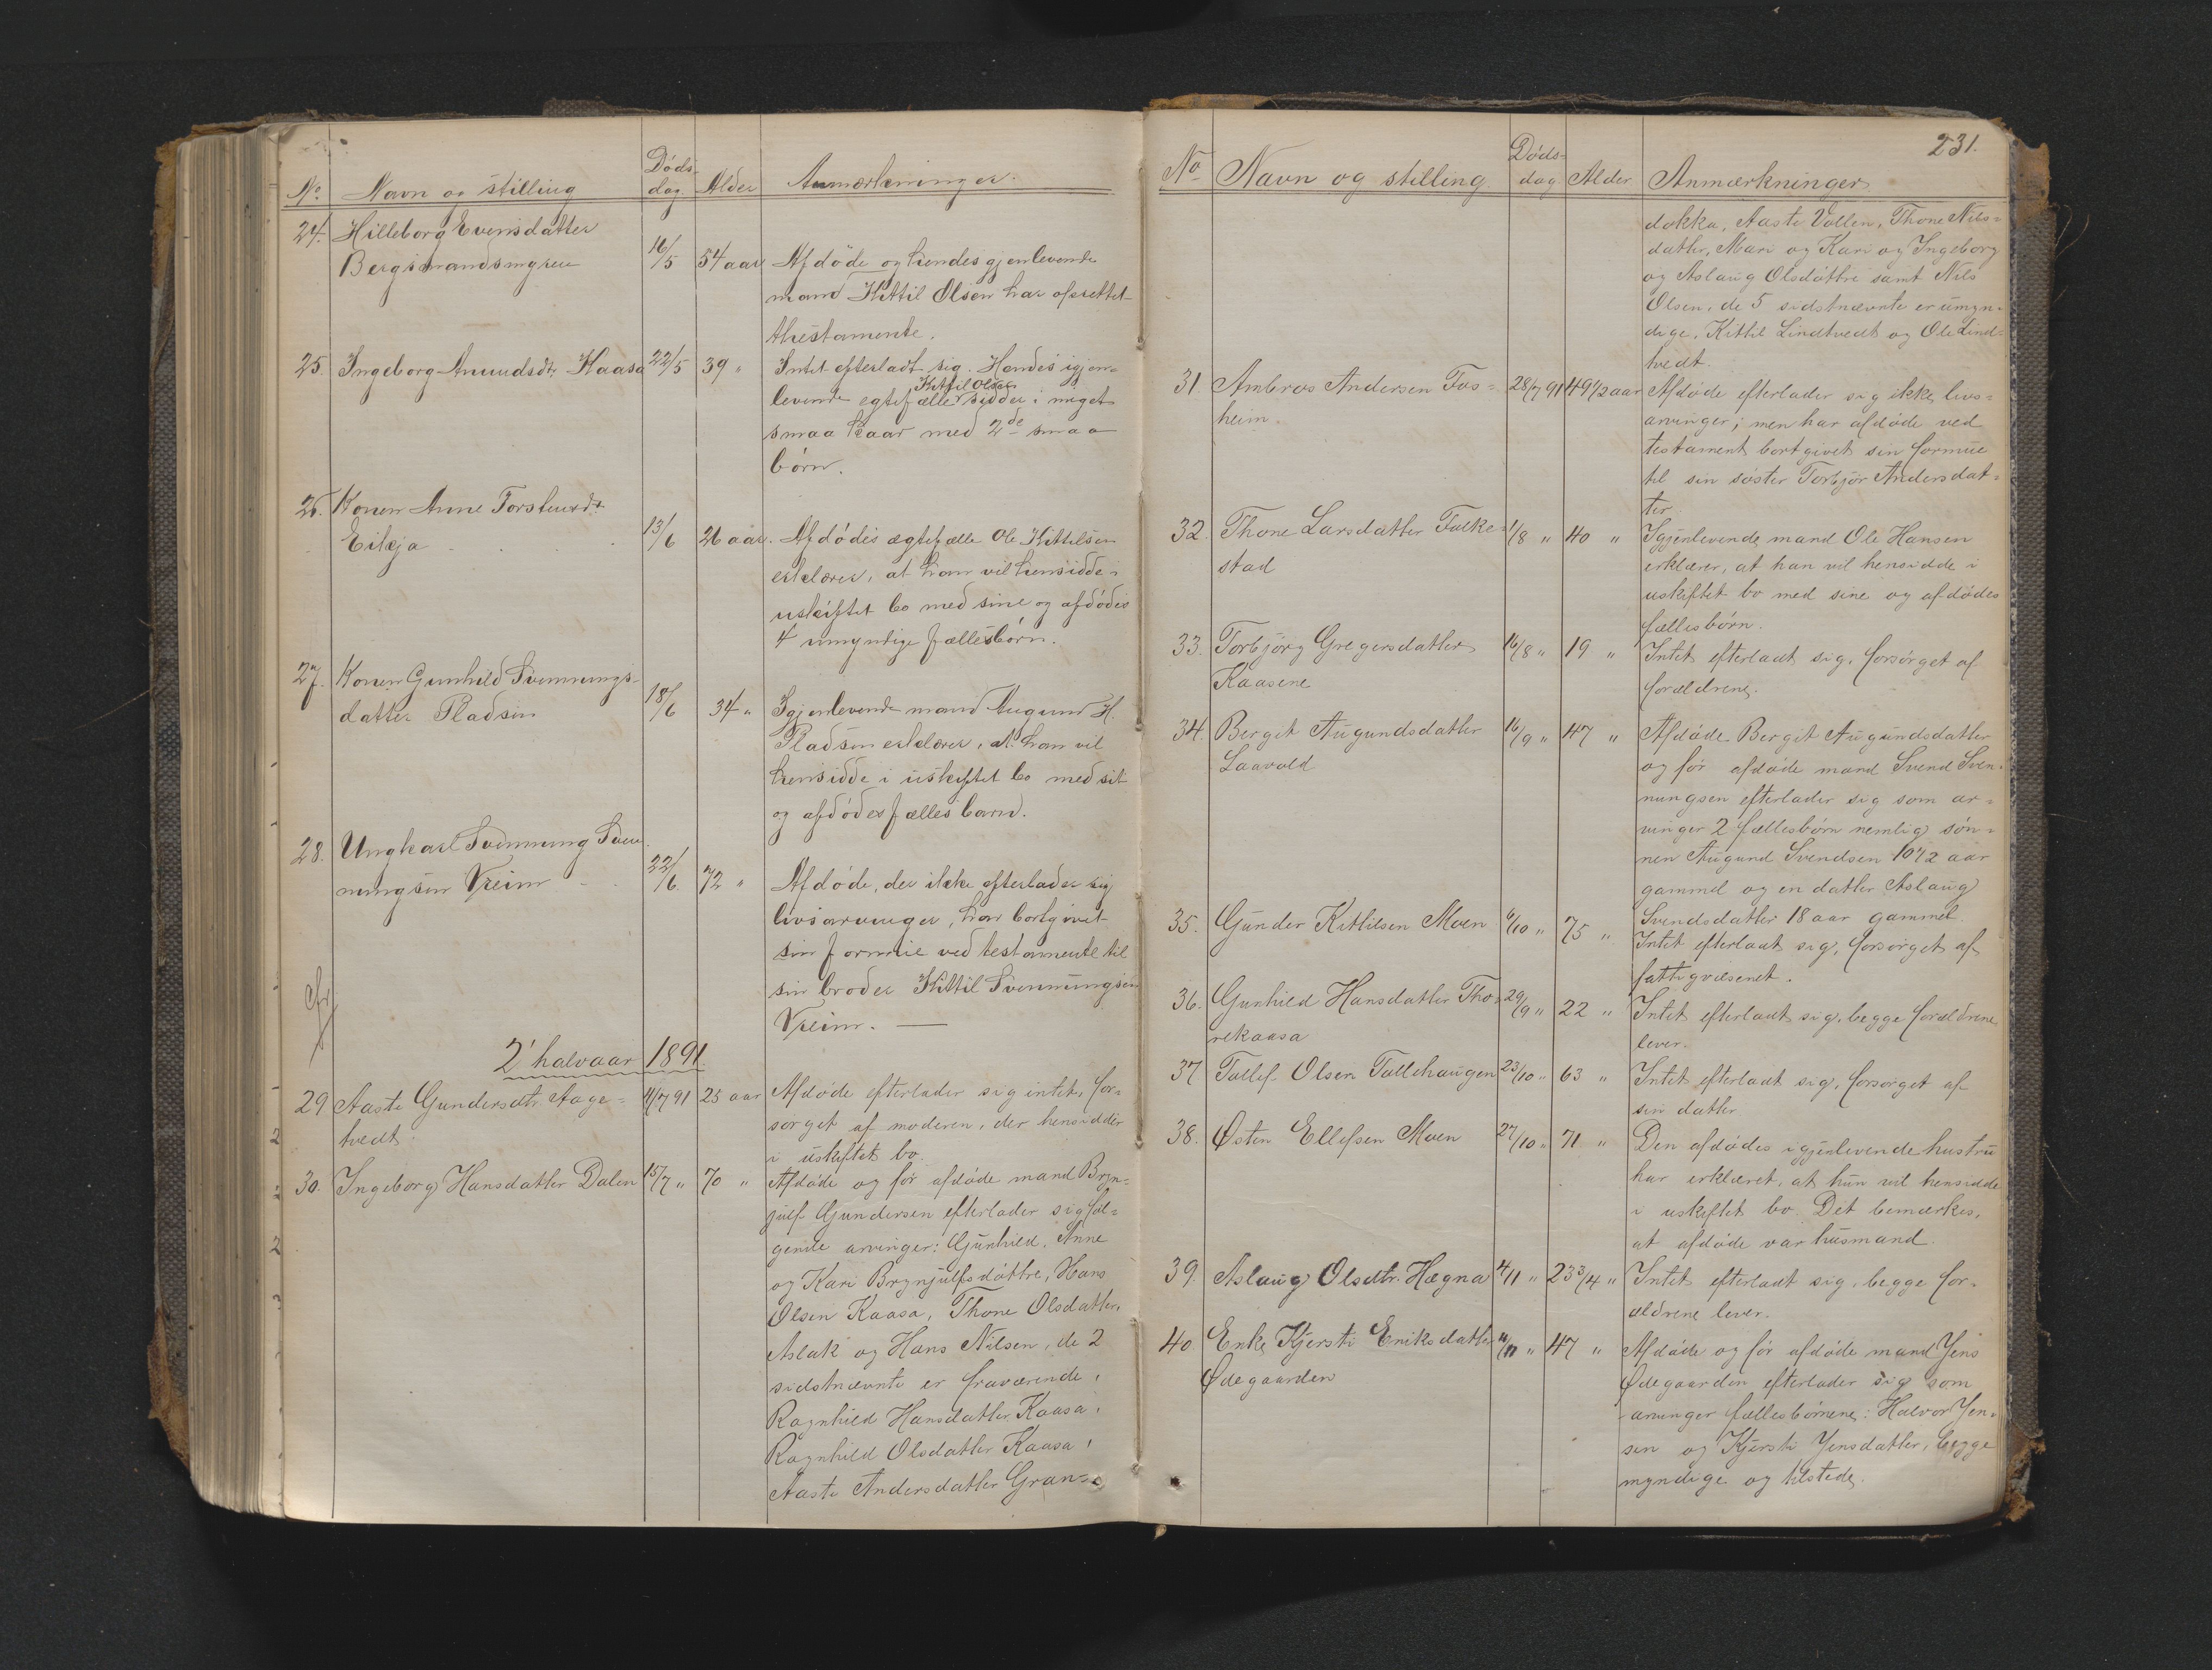 No. Navn og stilling Døds-dag. Alder Anmærkninger.
24. Hilleborg Evensdatter
16/5 54 aar Afdøde og hendes gjenlevende
mand Kittil Olsen har oprettet
thestamente.
25. Ingeborg Amundsdt. Kaasa 22/5 39 " Intet efterladt sig. Hendes igjen-
levende egtefælle Kittil Olsen sidder i meget
smaa kaar med 2de smaa
børn.
26. Konen Anne Torsteinsdt.
Eikja 13/6 26 aar. Afdødes ægtefælle Ole Kittilsen
erklærer, at han vil hensidde i
uskiftet bo med sine og afdødes
4 umyndige fællesbørn.
27. Konen Gunhild Svennungs-
datter Pladsen 18/6 34 " Igjenlevende mand Augund H.
Pladsen erklærer, at han vil
hensidde i uskiftet bo med sit
og afdødes fælles barn.
28. Ungkarl Svennung Sven-
nungsen Vreim 22/6 72 " Afdøde, der ikke efterlader sig
livsarvinger, har bortgivet
sin formue ved testamente til
sin broder Kittil Svennungsen
Vreim. —
2' halvaar 1891.
29 Aaste Gundersdtr. Aage= 11/7 91 25 aar Afdøde efterlader sig intet, for-
tvedt. sørget af moderen, der hensidder
i uskiftet bo.
30. Ingeborg Hansdatter Dalen 15/7 " 70 " Afdøde og før afdøde mand Bryn=
julf Gundersen efterlader sig føl=
gende arvinger: Gunhild, Anne
og Kari Brynjulfsdøttre, Hans
Olsen Kaasa, Thone Olsdatter,
Aslak og Hans Nilsen, de 2
sidstnævnte er fraværende,
Ragnhild Hansdatter Kaasa,
Ragnhild Olsdatter Kaasa,
Aaste Andersdatter Gran=
231.
No Navn og stilling Døds-dag. Alder Anmærkninger
dokka, Aaste Vollen, Thone Nils=
datter, Mari og Kari og Ingeborg
og Aslaug Olsdøttre samt Nils
Olsen, de 5 sidstnævnte er umyn=
dige. Kittil Lindtvedt og Ole Lind=
tvedt.
31. Ambros Andersen Fos= 28/7 91 49 1/2 aar Afdøde efterlader sig ikke livs=
heim. arvinger; men har afdøde ved
testament bortgivet sin formue
til sin søster Torbjør Andersdat=
ter.
32. Thone Larsdatter Folke= 1/8 " 40 " Igjenlevende mand Ole Hansen
stad erklærer, at han vil hensidde i
uskiftet bo med sine og afdødes
fællesbørn.
33. Torbjørg Gregersdatter 16/8 " 19 " Intet efterladt sig, forsørget af
Kaasene forældrene.
34. Bergit Augundsdatter 16/9 " 47 " Afdøde Bergit Augundsdatter
Laavold og før afdøde mand Svend Sven=
nungsen efterlader sig som ar=
vinger 2 fællesbørn nemlig søn=
nen Augund Svendsen 10 1/2 aar
gammel og en datter Aslaug
Svendsdatter 18 aar gammel.
35. Gunder Kittilsen Moen 6/10 " 75 " Intet efterladt sig, forsørget af
fattigvæsenet.
36. Gunhild Hansdatter Tho= 29/9 " 22 " Intet efterladt sig, begge forældrene
rekaasa lever.
37 Tollef Olsen Tollehaugen 23/10 " 63 " Intet efterladt sig, forsørget af
sin datter
38. Østen Ellefsen Moen 27/10 " 71 " Den afdødes igjenlevende hustru
har erklæret, at hun vil hensidde
i uskiftet bo. Det bemærkes,
at afdøde var husmand.
39. Aslaug Olsdtr. Hægna 4/11 " 23 3/4 " Intet efterladt sig, begge for=
ældrene lever.
40 Enke Kjersti Eriksdatter /11 " 47 " Afdøde og før afdøde mand Jens
Ødegaarden Ødegaarden efterlader sig som
arvinger fællesbørnene: Halvor Jen=
sen og Kjersti Jensdatter, begge
myndige og tilstede.